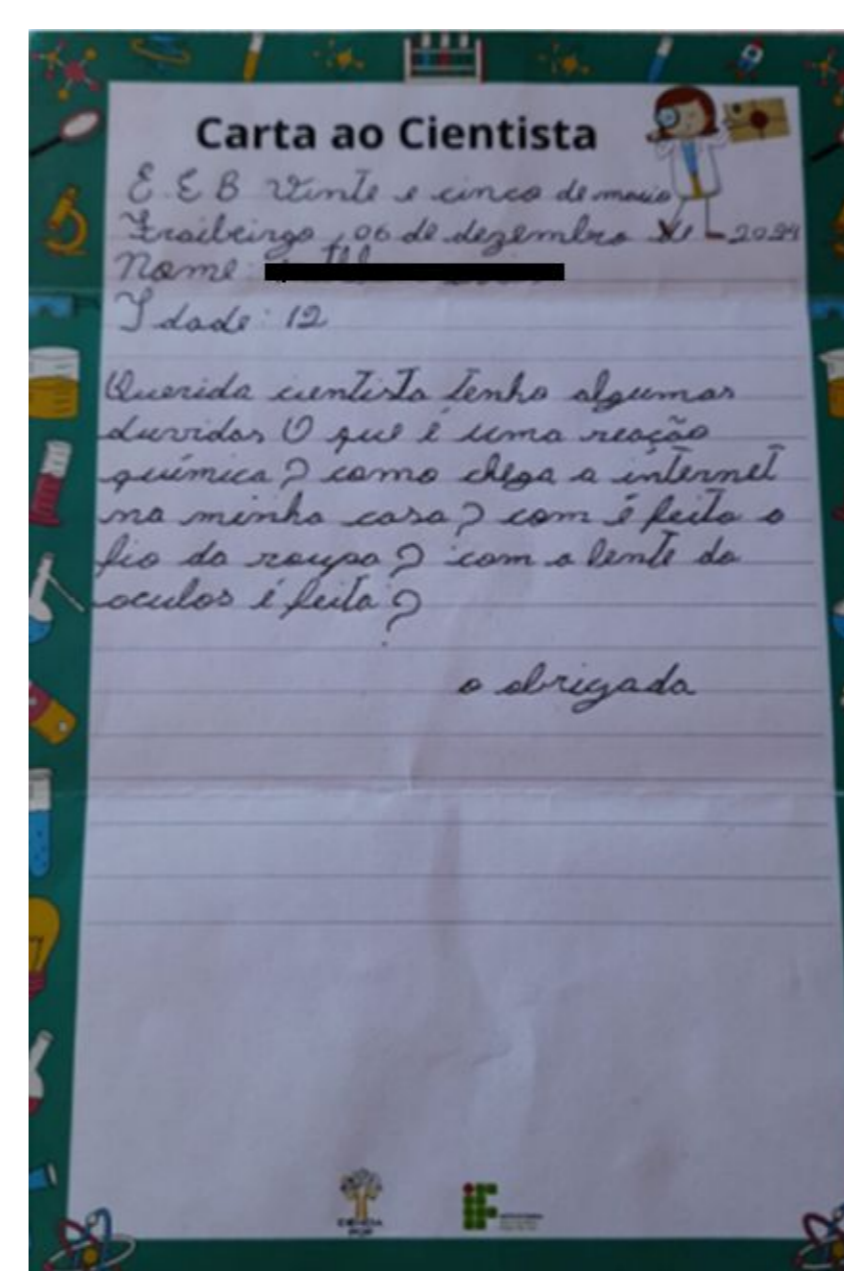 Carta ao Cientista
E E B Vinte e cinco de maio
Fraiburgo, 06 de dezembro de 2024
Nome:
Idade: 12
Querida cientista tenho algumas
duvidas O que é uma reação
química? como chega a internet
na minha casa? com é feito o
fio da roupa? com a lente do
oculos é feita?
o obrigada
CIÊNCIA
POP